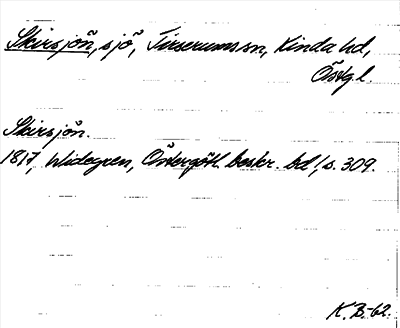 Skirsjön, sjö, Tirserums sn, Kinda hd,
Östg.l.
Skirsjön.
1817, Widegren, Östergötl. beskr. bd 1, s. 309.
K.B.-62.